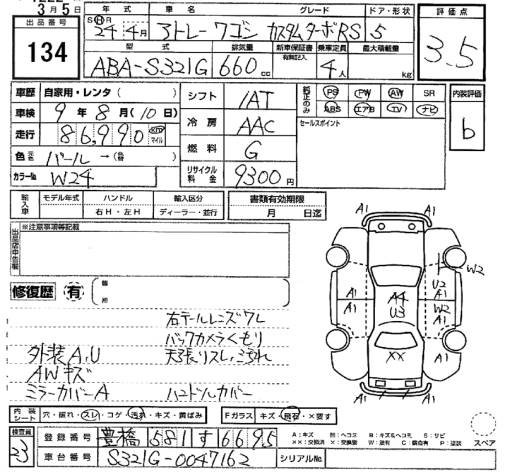 3月5日
出品番号 134
年式 車名 グレード ドア・形状
S H R 24年4月 アトレーワゴン カスタムターボRS 5
型式 排気量 新車保証書 有無記入 乗車定員 最大積載量
ABA-S321G 660cc 4人 kg
評価点
3.5
車歴 自家用・レンタ( )
車検 9年8月(10日)
走行 86,990 km マイル
色 元色 パール→(替色 )
カラーNo. W24
シフト IAT
冷房 AAC
燃料 G
リサイクル料金 9300円
純正のみ PS PW AW SR
ABS エアB TV ナビ
セールスポイント
内装評価
b
輸入車 モデル年式 ハンドル 輸入区分
右H・左H ディーラー・並行
書類有効期限
月 日迄
出品店申告欄
※注意事項等記載
修復歴 有 箇所
右テールレンズワレ
バックカメラくもり
外装A,U 天張リスレ,こすれ
AWキズ
ミラーカバーA ハンドルカバー
A1 A1
W2
A1 A1 U2 A1
A4 U3
A1 A1 W2 A1
XX
A1 A1
内装シート 穴・破れ・スレ・コゲ・汚れ・キズ・黄ばみ
Fガラス キズ・飛石・×要す
スペア
検査員 23
登録番号 豊橋 581 す 6695
車台番号 S321G-0047162
シリアルNo.
A:キズ U:ヘコミ B:キズ&ヘコミ S:サビ
XX:交換済 X:交換要 W:波有 C:腐食有 P:塗装